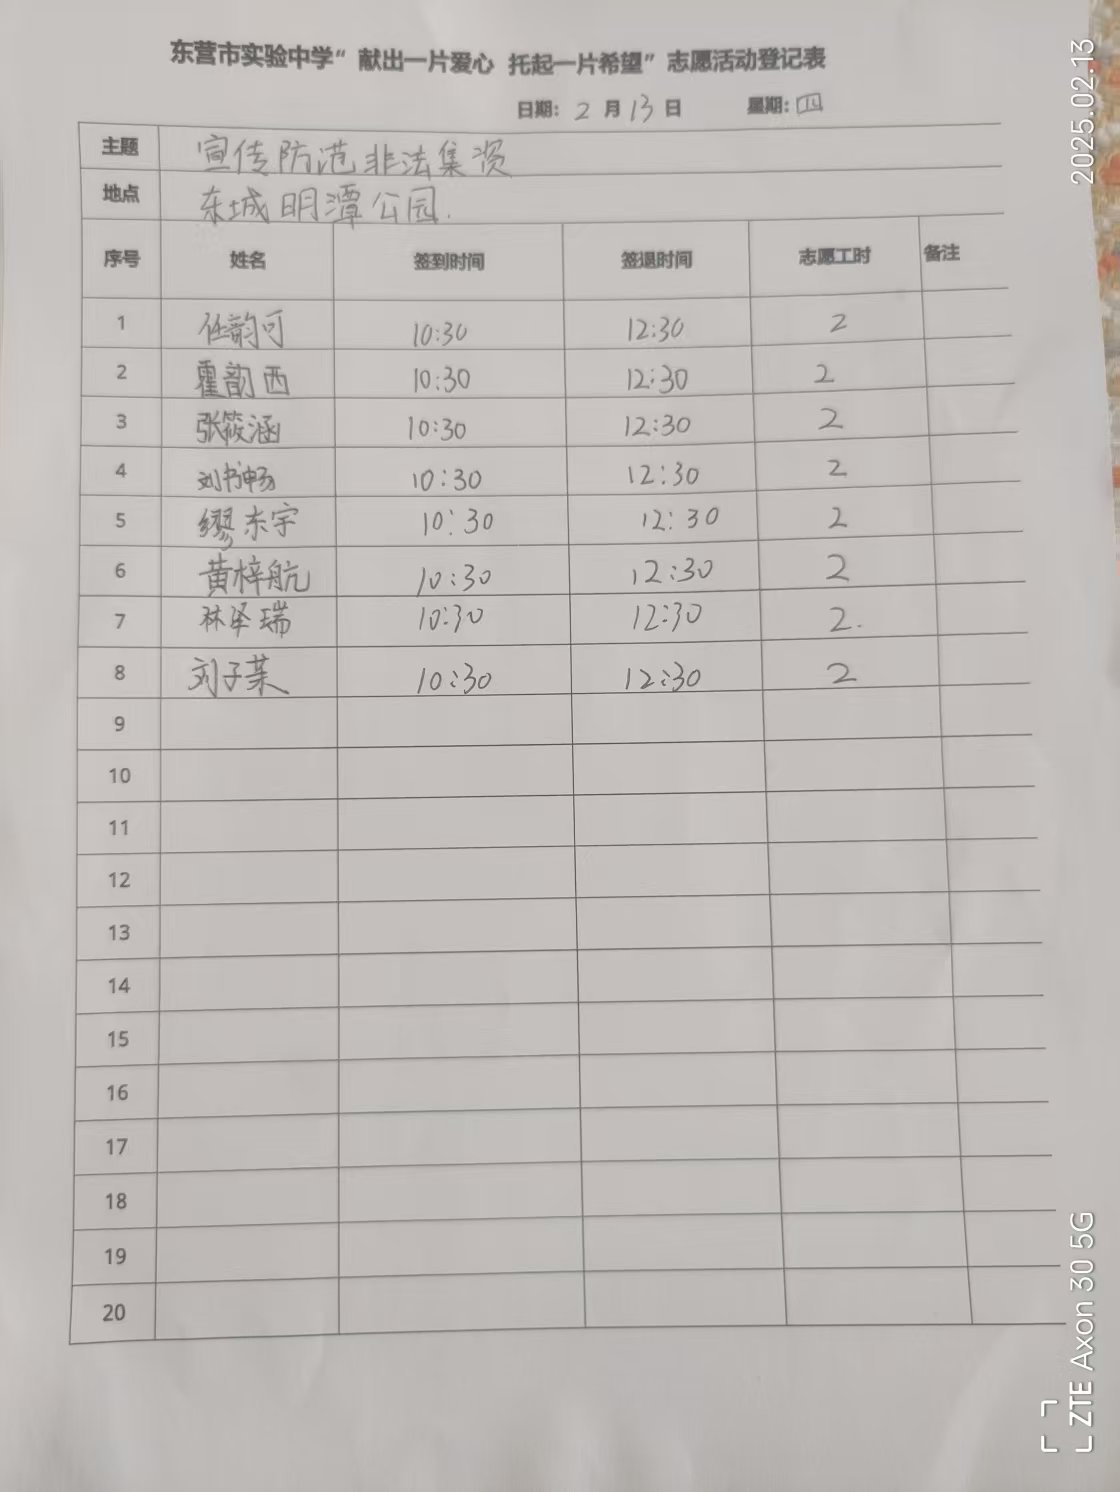 东营市实验中学“献出一片爱心 托起一片希望”志愿活动登记表
日期：2月13日 星期：四
主题 宣传防范非法集资
地点 东城明潭公园.
序号 姓名 签到时间 签退时间 志愿工时 备注
1 任韵可 10:30 12:30 2
2 霍韵西 10:30 12:30 2
3 张筱涵 10:30 12:30 2
4 刘书畅 10:30 12:30 2
5 缪东宇 10:30 12:30 2
6 黄梓航 10:30 12:30 2
7 林泽瑞 10:30 12:30 2.
8 刘子茉 10:30 12:30 2
9
10
11
12
13
14
15
16
17
18
19
20
2025.02.13
ZTE Axon 30 5G